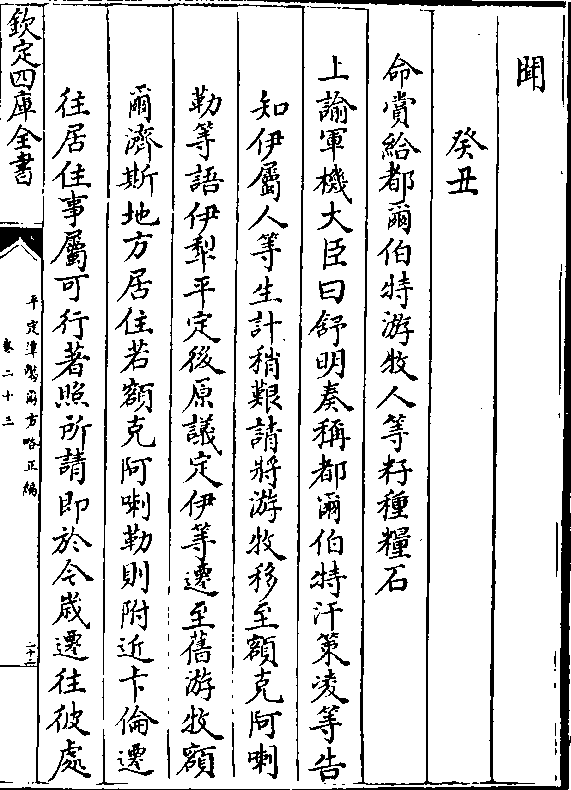 聞
癸丑
命賞給都爾伯特游牧人等籽種糧石
上諭軍機大臣曰舒明奏稱都爾伯特汗策凌等告
知伊屬人等生計稍艱請將游牧移至額克阿喇
勒等語伊犁平定後原議定伊等遷至舊游牧額
爾濟斯地方居住若額克阿喇勒則附近卡倫遷
往居住事屬可行著照所請即於今歲遷往彼處
欽定四庫全書
平定準噶爾方略正編
卷二十三